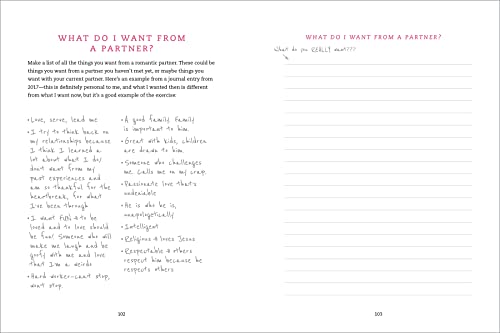 WHAT DO I WANT FROM
A PARTNER?
Make a list of all the things you want from a romantic partner. These could be
things you want from a partner you haven't met yet, or maybe things you
want with your current partner. Here's an example from a journal entry from
2017—this is definitely personal to me, and what I wanted then is different
from what I want now, but it's a good example of the exercise:
• Love, serve, lead me
• I try to think back on
my relationships because
I think I learned a
lot about what I do/
don't want from my
past experiences and
am so thankful for the
heartbreak, for what
I've been through
• I want FUN → to be
loved and to love should
be fun! Someone who will
make me laugh and be
goofy with me and love
that I'm a weirdo
• Hard worker-can't stop,
won't stop.
• A good family. Family
is important to him.
• Great with kids, children
are drawn to him.
• Someone who challenges
me. Calls me on my crap.
• Passionate love that's
undeniable
• He is who he is,
unapologetically
• Intelligent
• Religious → loves Jesus
• Respectable → others
respect him because he
respects others
102
WHAT DO I WANT FROM A PARTNER?
What do you REALLY want???
103